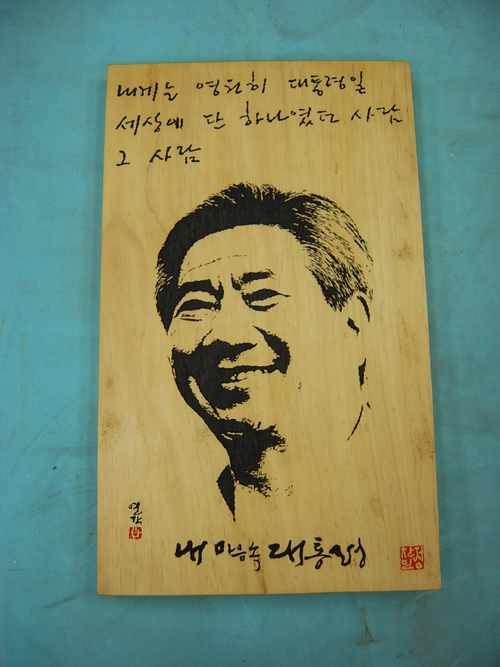 내게는 영원히 대통령일
세상에 단 하나였던 사람
그 사람
내 마음속 대통령